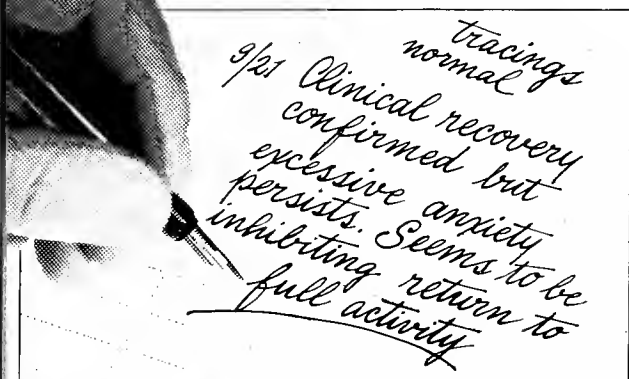 tracings
normal
9/21 Clinical recovery
confirmed but
excessive anxiety
persists. Seems to be
inhibiting return to
full activity